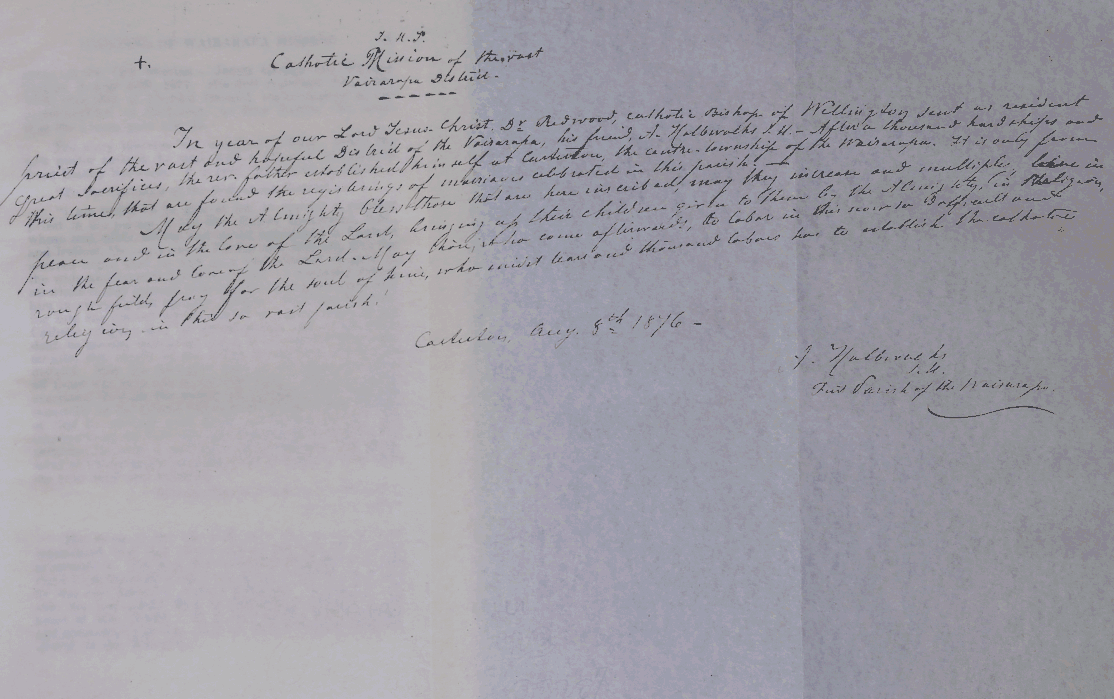 J. H. S.
+. Catholic Mission of the vast
Vairarapa District.
In year of our Lord Jesus-Christ, Dr Redwood, catholic Bishop of Wellington sent as resident
priest of the vast and hopeful District of the Vairarapa, his friend, A. Halbwachs S.M. - After a thousand hardships and
great sacrifices, the rev. father established himself at Carterton, the centre-township of the Wairarapa. It is only from
this time, that are found the registerings of marriages celebrated in this parish! -
May the Almighty bless those that are here inscribed, may they increase and multiply, in
peace and in the love of the Lord, bringing up their children given to them by the Almighty, in Religion,
in the fear and love of the Lord. - May those, who come afterwards, to labor in this so difficult and
rough field, pray for the soul of him, who midst tears and thousand labors has to establish the catholic
religion in this so vast parish.
Carterton, Aug. 8th 1876 -
J. Halbwachs
S.M.
First Parish of the Wairarapa.